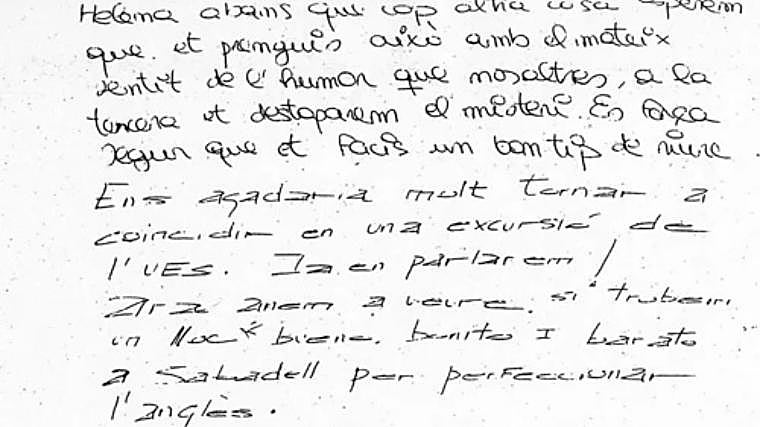 Helena abans que cap altra cosa esperem
que et prenguis això amb el mateix
sentit de l'humor que nosaltres, a la
tercera et destaparem el misteri. És força
segur que et facis un bon tip de riure
Ens agadaria molt tornar a
coincidir en una excursió de
l'UES. Ja en parlarem /
Ara anem a veure. si trubem
un lloc* bueno. bonito I barato
a Sabadell per perfeccionar
l'anglès.